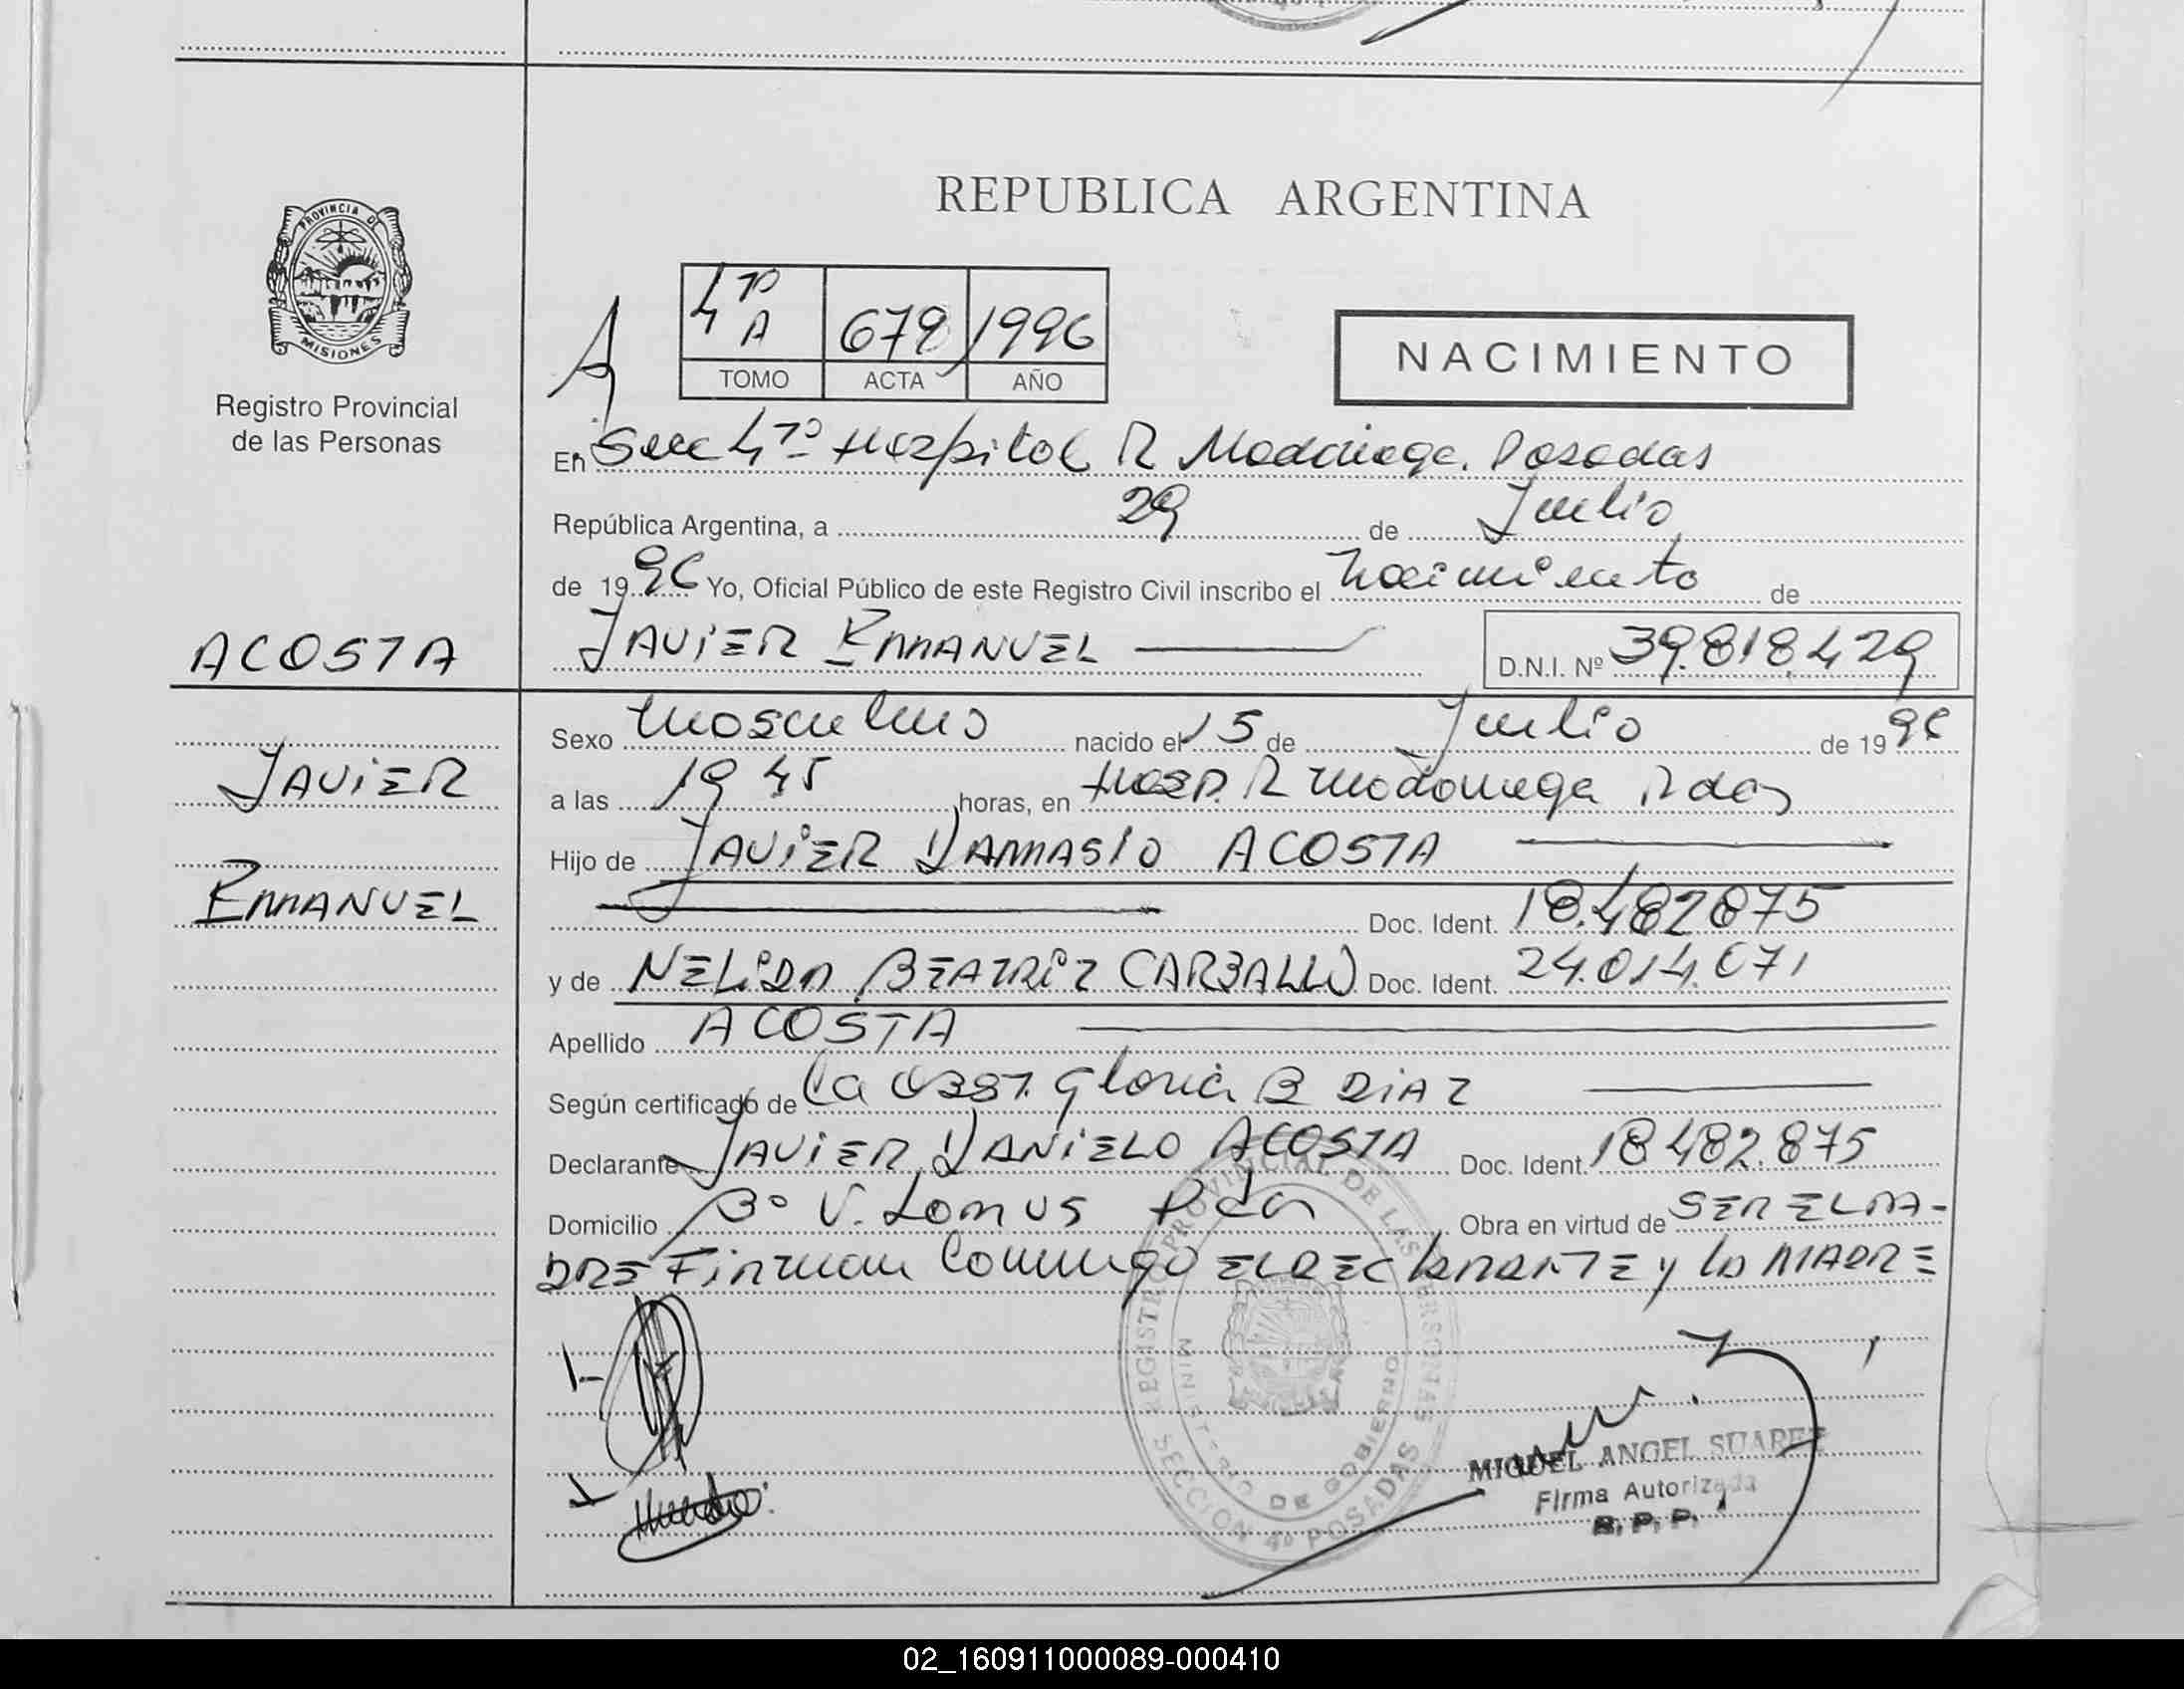 REPUBLICA ARGENTINA
PROVINCIA DE MISIONES
Registro Provincial
de las Personas
4to A 679 1996
TOMO ACTA AÑO
NACIMIENTO
En Secc 4to Hospital R Madariaga. Posadas
República Argentina, a 29 de Julio
de 1996 Yo, Oficial Público de este Registro Civil inscribo el Nacimiento de
ACOSTA
JAVIER EMMANUEL D.N.I. Nº 39.818.429
Sexo Masculino nacido el 15 de Julio de 1996
JAVIER
a las 19 45 horas, en Hosp. R Madariaga Pdas
Hijo de JAVIER DAMASIO ACOSTA
EMMANUEL
Doc. Ident. 18.482875
y de NELIDA BEATRIZ CARBALLO Doc. Ident. 24.014.671
Apellido ACOSTA
Según certificado de La OBST. Gloria B DIAZ
Declarante JAVIER DANIELO ACOSTA Doc. Ident. 18482.875
Domicilio Bº V. Lomus Pdas Obra en virtud de SER EL PA-
DRE Firman Conmigo EL DECLARANTE y LA MADRE
REGISTRO PROVINCIAL DE LAS PERSONAS
MINISTERIO DE GOBIERNO
SECCION 4º POSADAS
MIGUEL ANGEL SUAREZ
Firma Autorizada
R. P. P.
02_160911000089-000410